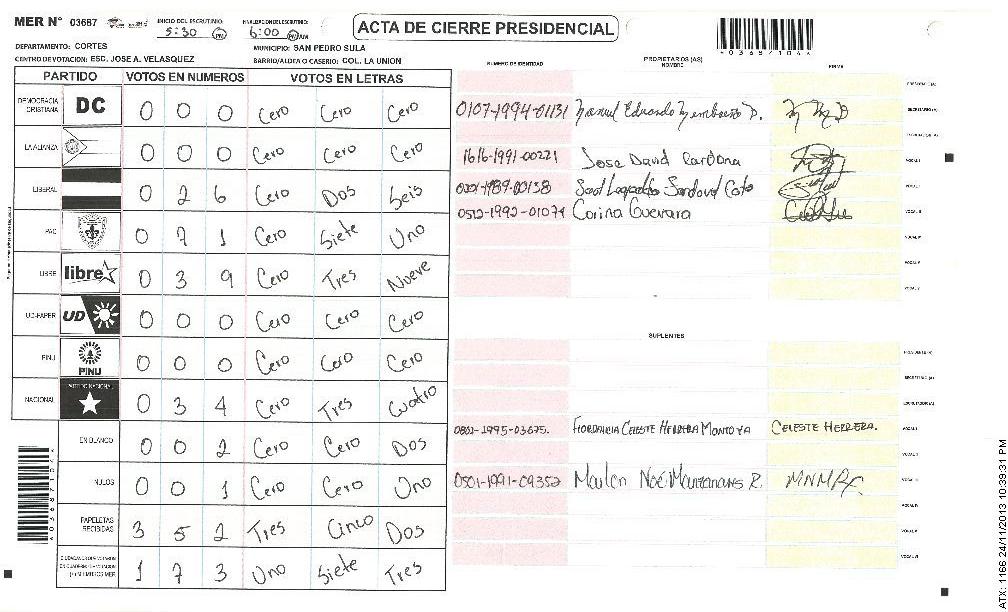 MER N° 03687 INICIO DEL ESCRUTINIO: 5:30 PM FINALIZACION DEL ESCRUTINIO: 6:00 PM ACTA DE CIERRE PRESIDENCIAL
DEPARTAMENTO: CORTES MUNICIPIO: SAN PEDRO SULA
CENTRO DE VOTACION: ESC. JOSE A. VELASQUEZ BARRIO/ALDEA O CASERIO: COL. LA UNION
NUMERO DE IDENTIDAD PROPIETARIOS (AS) NOMBRE FIRMA
PARTIDO VOTOS EN NUMEROS VOTOS EN LETRAS
DEMOCRACIA CRISTIANA DC 0 0 0 Cero Cero Cero
LA ALIANZA 0 0 0 Cero Cero Cero
LIBERAL 0 2 6 Cero Dos Seis
PAC 0 7 1 Cero Siete Uno
LIBRE libre 0 3 9 Cero Tres Nueve
UD-FAPER UD 0 0 0 Cero Cero Cero
PINU PINU 0 0 0 Cero Cero Cero
NACIONAL PARTIDO NACIONAL 0 3 4 Cero Tres Cuatro
EN BLANCO 0 0 2 Cero Cero Dos
NULOS 0 0 1 Cero Cero Uno
PAPELETAS RECIBIDAS 3 5 2 Tres Cinco Dos
CIUDADANOS QUE VOTARON EN CUADERNO DE VOTACION (+) MIEMBROS MER 1 7 3 Uno Siete Tres
0107-1994-01131 Manuel Eduardo
1616-1991-00221 Jose David Cardona
Sandoval
0512-1992-01074 Corina Guevara
SUPLENTES
CELESTE HERRERA MONTOYA CELESTE HERRERA.
0501-1991-09352 Marlon Noé Manzanares R.
ATX: 1166 24/11/2013 10:39:31 PM